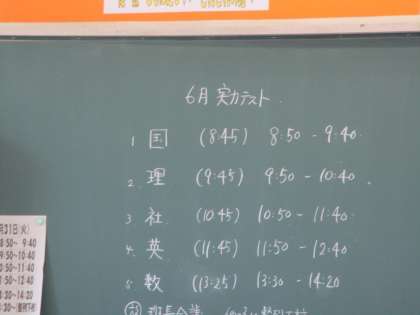 6月 実力テスト
1. 国 (8:45) 8:50 - 9:40
2. 理 (9:45) 9:50 - 10:40
3. 社 (10:45) 10:50 - 11:40
4. 英 (11:45) 11:50 - 12:40
5. 数 (13:25) 13:30 - 14:20
月31日(火)
8:50～ 9:40
9:50～10:40
0:50～11:40
1:50～12:40
3:30～14:20